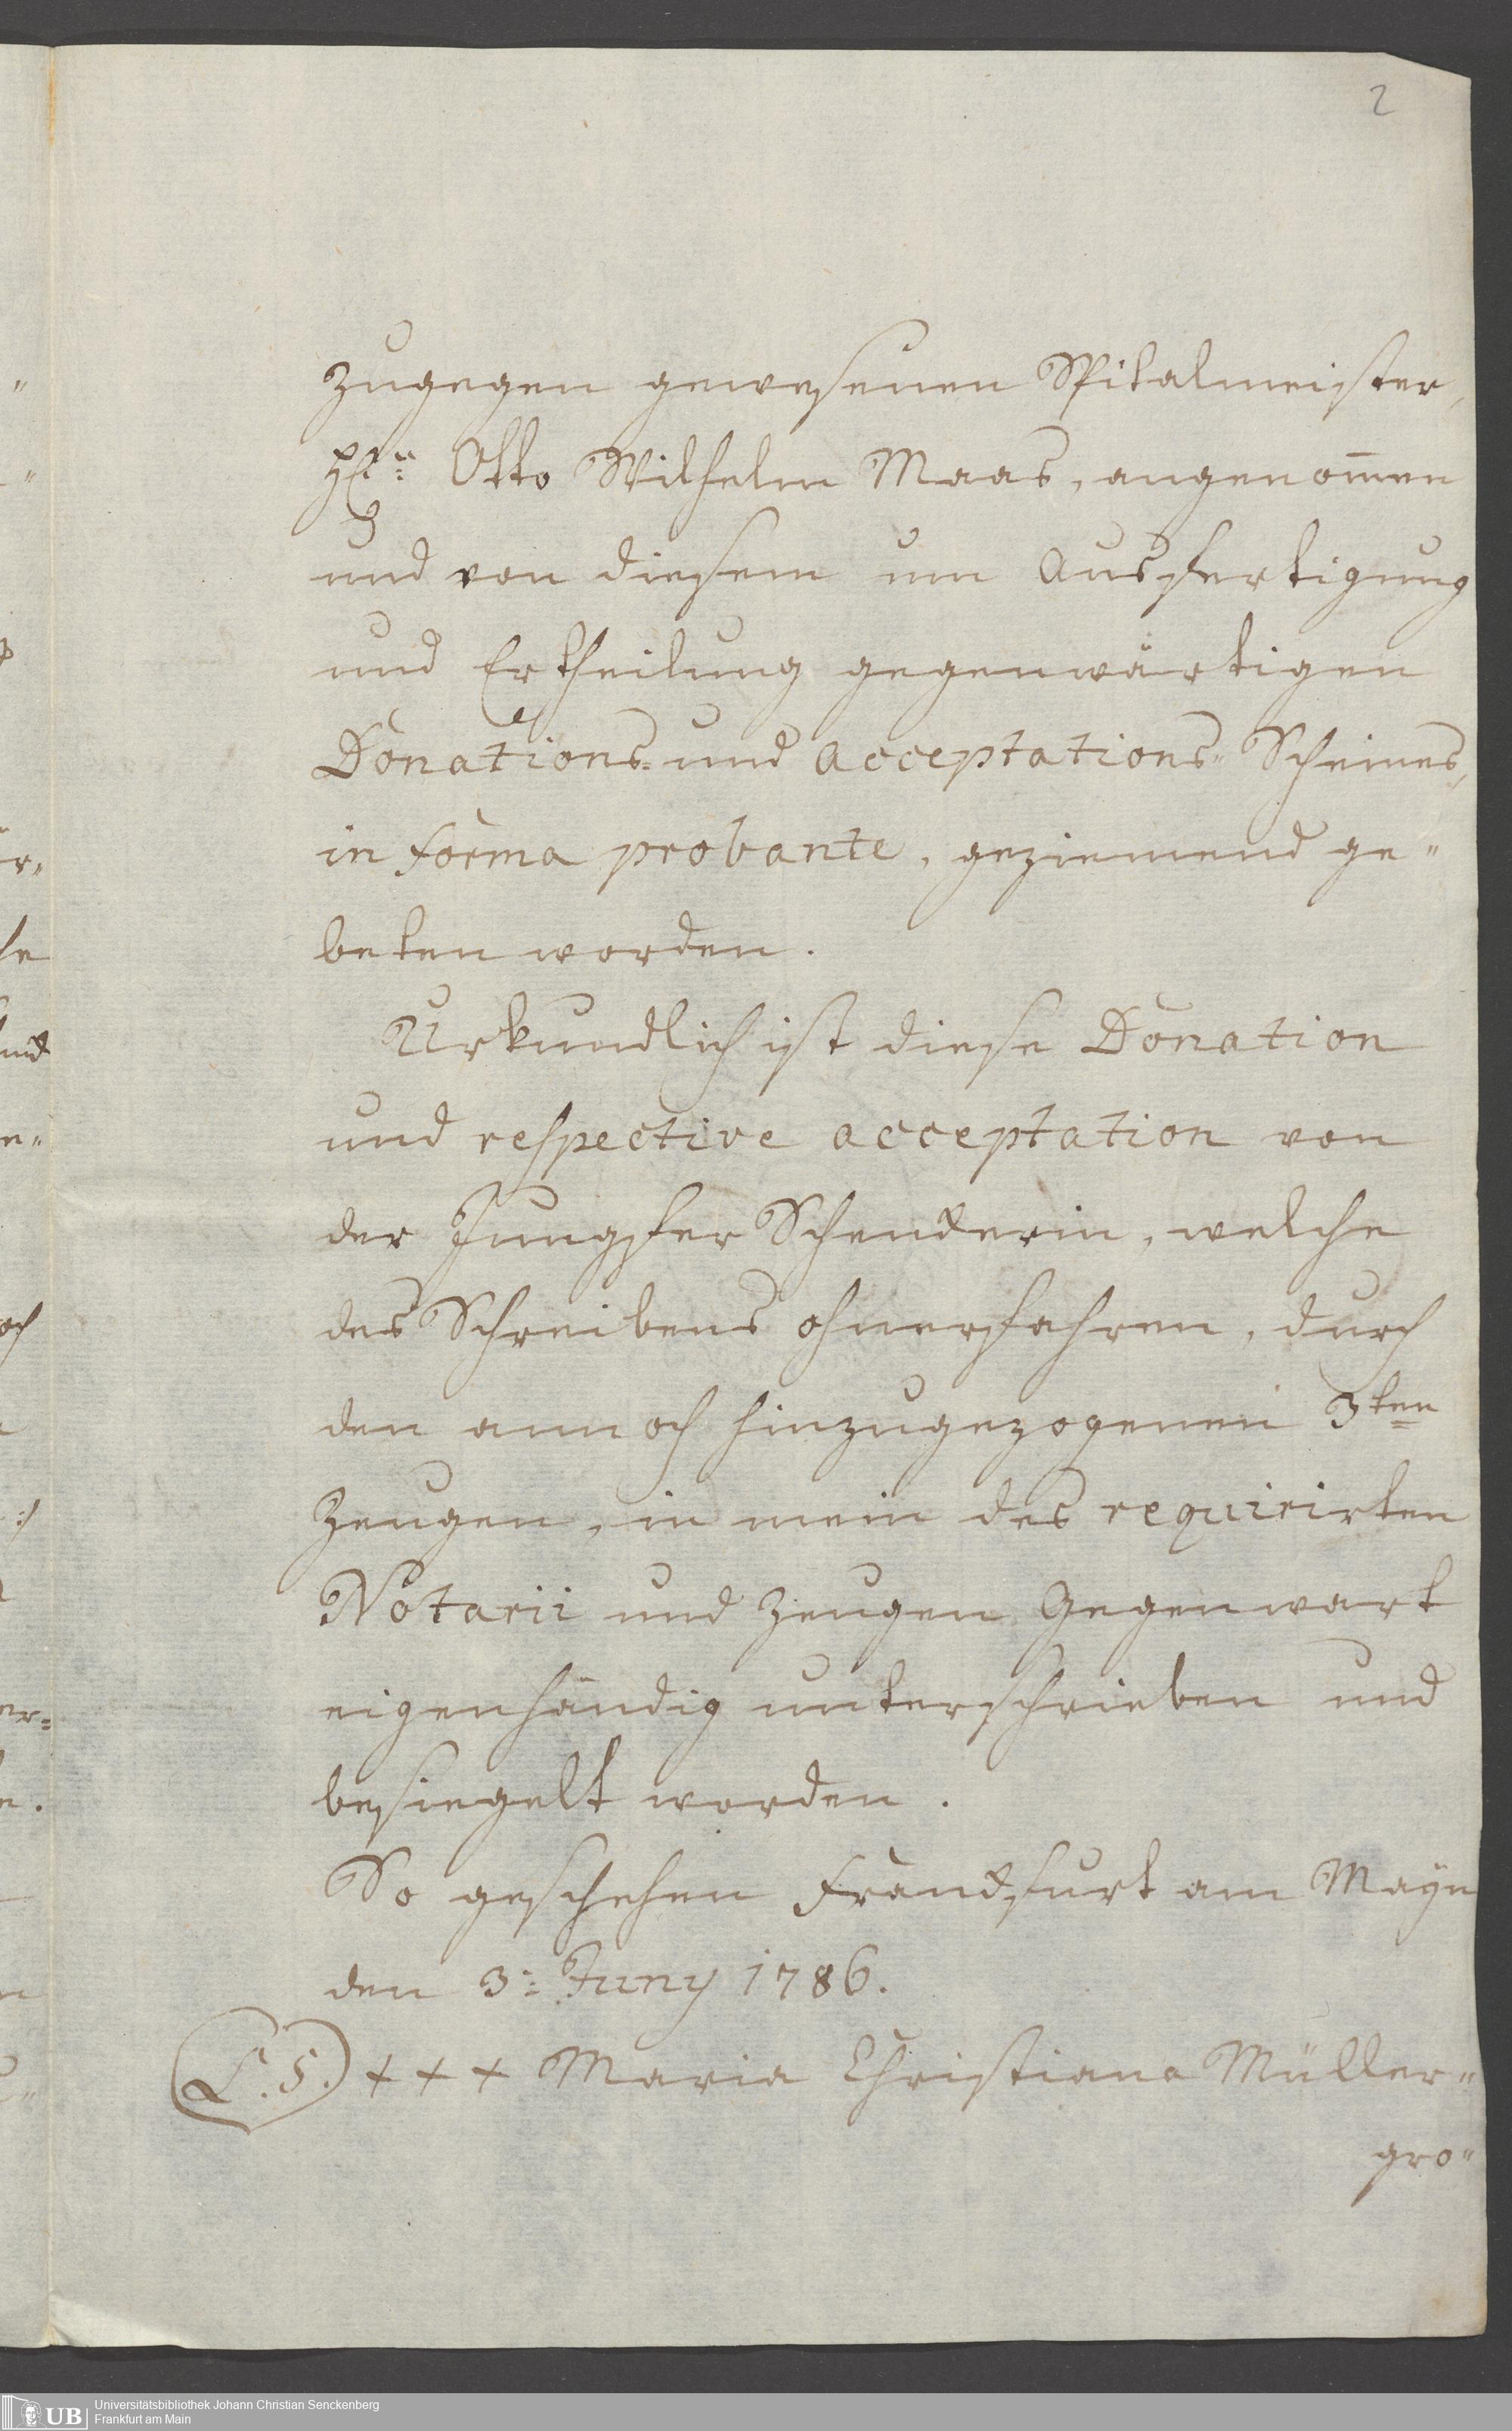 2
zugegen gewesenen Spitalmeister,
H<sup>rn</sup> Otto Wilhelm Maas, angenom̅en
und von diesem um Ausfertigung
und Ertheilung gegenwärtigen
Donations- und Acceptations-Scheines,
in forma probante, geziemend ge-
beten worden.
Urkundlich ist diese Donation
und respective acceptation von
der Jungfer Schenckerin, welche
des Schreibens ohnerfahren, durch
den annoch hinzugezogenen 3ten
Zeugen, in mein des requirirten
Notarii und Zeugen Gegenwart
eigenhändig unterschrieben und
besiegelt worden.
So geschehen Franckfurt am Mayn
den 3: Juny 1786.
(L.S.) + + + Maria Christiana Müller-
gro-
Universitätsbibliothek Johann Christian Senckenberg
Frankfurt am Main
UB